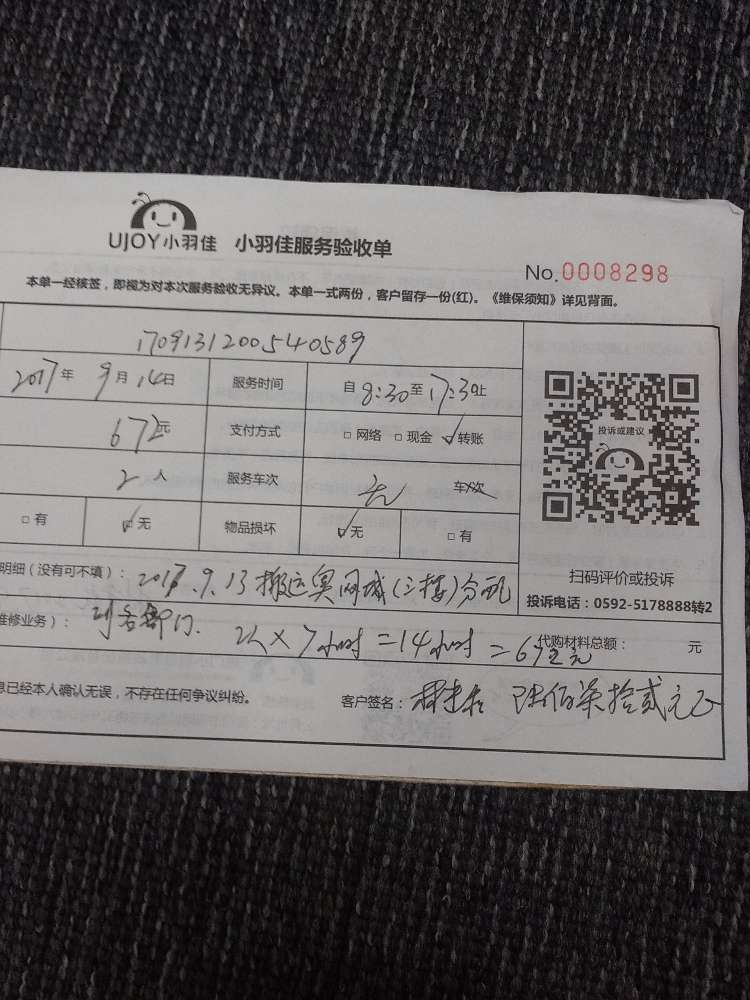 UJOY小羽佳 小羽佳服务验收单
No.0008298
本单一经核签，即视为对本次服务验收无异议。本单一式两份，客户留存一份(红)。《维保须知》详见背面。
170913120054 0589
2017年 9月 14日 服务时间 自 8:30 至 17:30 止
672元 支付方式 □ 网络 □ 现金 ☑ 转账
投诉或建议
2人 服务车次 无 车次
□ 有 ☑ 无 物品损坏 ☑ 无 □ 有
扫码评价或投诉
投诉电话：0592-5178888转2
明细（没有可不填）： 2017.9.13 搬运 网城(三楼)分配
维修业务）： 到各部门. 2人×7小时=14小时=672元 代购材料总额： 元
息已经本人确认无误，不存在任何争议纠纷。 客户签名： 陆佰柒拾贰元正